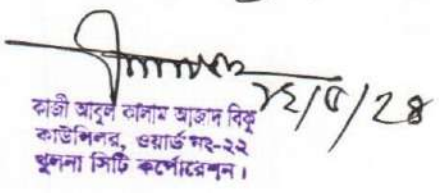 ২৫/৫/২৪
কাজী আবুল কালাম আজাদ বিকু
কাউন্সিলর, ওয়ার্ড নং-২২
খুলনা সিটি কর্পোরেশন।